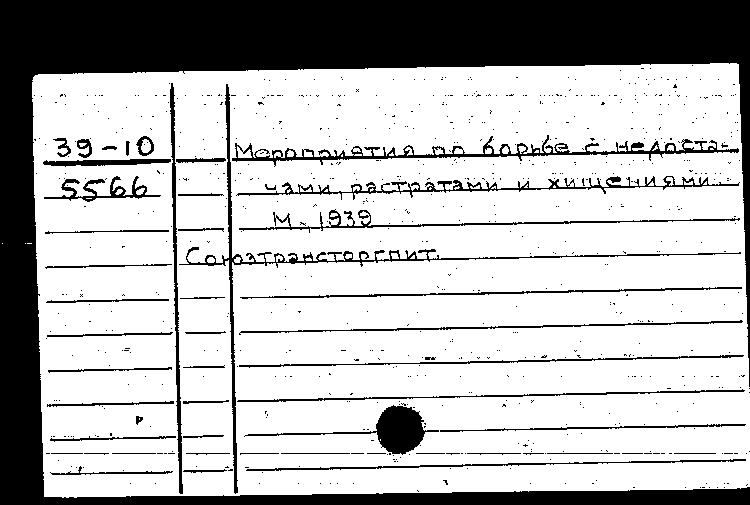 39-10 Мероприятия по борьбе с недоста-
5566 чами, растратами и хищениями.
М., 1939
Союзтрансторгпит.